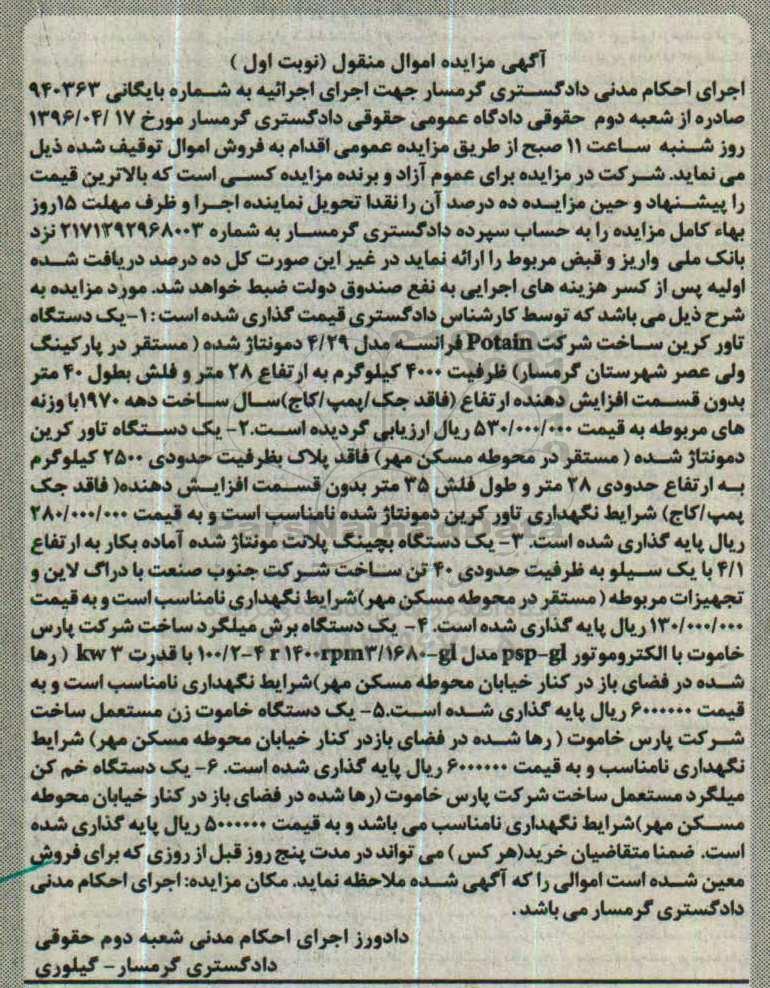 آگهی مزایده اموال منقول (نوبت اول )
اجرای احکام مدنی دادگستری گرمسار جهت اجرای اجرائیه به شماره بایگانی ۹۴۰۳۶۳
صادره از شعبه دوم حقوقی دادگاه عمومی حقوقی دادگستری گرمسار مورخ ۱۷ /۱۳۹۶/۰۴
روز شنبه ساعت ۱۱ صبح از طریق مزایده عمومی اقدام به فروش اموال توقیف شده ذیل
می نماید. شرکت در مزایده برای عموم آزاد و برنده مزایده کسی است که بالاترین قیمت
را پیشنهاد و حین مزایده ده درصد آن را نقدا تحویل نماینده اجرا و ظرف مهلت ۱۵روز
بهاء کامل مزایده را به حساب سپرده دادگستری گرمسار به شماره ۲۱۷۱۲۹۲۹۶۸۰۰۳ نزد
بانک ملی واریز و قبض مربوط را ارائه نماید در غیر این صورت کل ده درصد دریافت شده
اولیه پس از کسر هزینه های اجرایی به نفع صندوق دولت ضبط خواهد شد. مورد مزایده به
شرح ذیل می باشد که توسط کارشناس دادگستری قیمت گذاری شده است :۱-یک دستگاه
تاور کرین ساخت شرکت Potain فرانسه مدل ۴/۲۹ دمونتاژ شده ( مستقر در پارکینگ
ولی عصر شهرستان گرمسار) ظرفیت ۴۰۰۰ کیلوگرم به ارتفاع ۲۸ متر و فلش بطول ۴۰ متر
بدون قسمت افزایش دهنده ارتفاع (فاقد جک/پمپ /کاج)سال ساخت دهه ۱۹۷۰با وزنه
های مربوطه به قیمت ۵۳۰/۰۰۰/۰۰۰ ریال ارزیابی گردیده است.۲- یک دستگاه تاور کرین
دمونتاژ شده ( مستقر در محوطه مسکن مهر) فاقد پلاک بظرفیت حدودی ۲۵۰۰ کیلوگرم
به ارتفاع حدودی ۲۸ متر و طول فلش ۳۵ متر بدون قسمت افزایش دهنده( فاقد جک
پمپ/کاج) شرایط نگهداری تاور کرین دمونتاژ شده نامناسب است و به قیمت ۲۸۰/۰۰۰/۰۰۰
ریال پایه گذاری شده است. ۳- یک دستگاه بچینگ پلانت مونتاژ شده آماده بکار به ارتفاع
۴/۱ با یک سیلو به ظرفیت حدودی ۴۰ تن ساخت شرکت جنوب صنعت با دراگ لاین و
تجهیزات مربوطه ( مستقر در محوطه مسکن مهر)شرایط نگهداری نامناسب است و به قیمت
۱۳۰/۰۰۰/۰۰۰ ریال پایه گذاری شده است. ۴- یک دستگاه برش میلگرد ساخت شرکت پارس
خاموت با الکتروموتور psp-gl مدل ۱۰۰/۲-۴ r ۱۴۰۰rpm۳/۱۶۸۰-gl با قدرت ۳ kw ( رها
شده در فضای باز در کنار خیابان محوطه مسکن مهر)شرایط نگهداری نامناسب است و به
قیمت ۶۰۰۰۰۰۰ ریال پایه گذاری شده است.۵- یک دستگاه خاموت زن مستعمل ساخت
شرکت پارس خاموت ( رها شده در فضای بازدر کنار خیابان محوطه مسکن مهر) شرایط
نگهداری نامناسب و به قیمت ۶۰۰۰۰۰۰ ریال پایه گذاری شده است. ۶- یک دستگاه خم کن
میلگرد مستعمل ساخت شرکت پارس خاموت (رها شده در فضای باز در کنار خیابان محوطه
مسکن مهر)شرایط نگهداری نامناسب می باشد و به قیمت ۵۰۰۰۰۰۰ ریال پایه گذاری شده
است. ضمنا متقاضیان خرید(هر کس ) می تواند در مدت پنج روز قبل از روزی که برای فروش
معین شده است اموالی را که آگهی شده ملاحظه نماید. مکان مزایده: اجرای احکام مدنی
دادگستری گرمسار می باشد .
دادورز اجرای احکام مدنی شعبه دوم حقوقی
دادگستری گرمسار- گیلوری